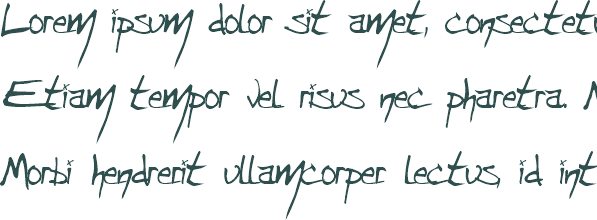 Lorem ipsum dolor sit amet, consectetu
Etiam tempor vel risus nec pharetra. N
Morbi hendrerit ullamcorper lectus, id int